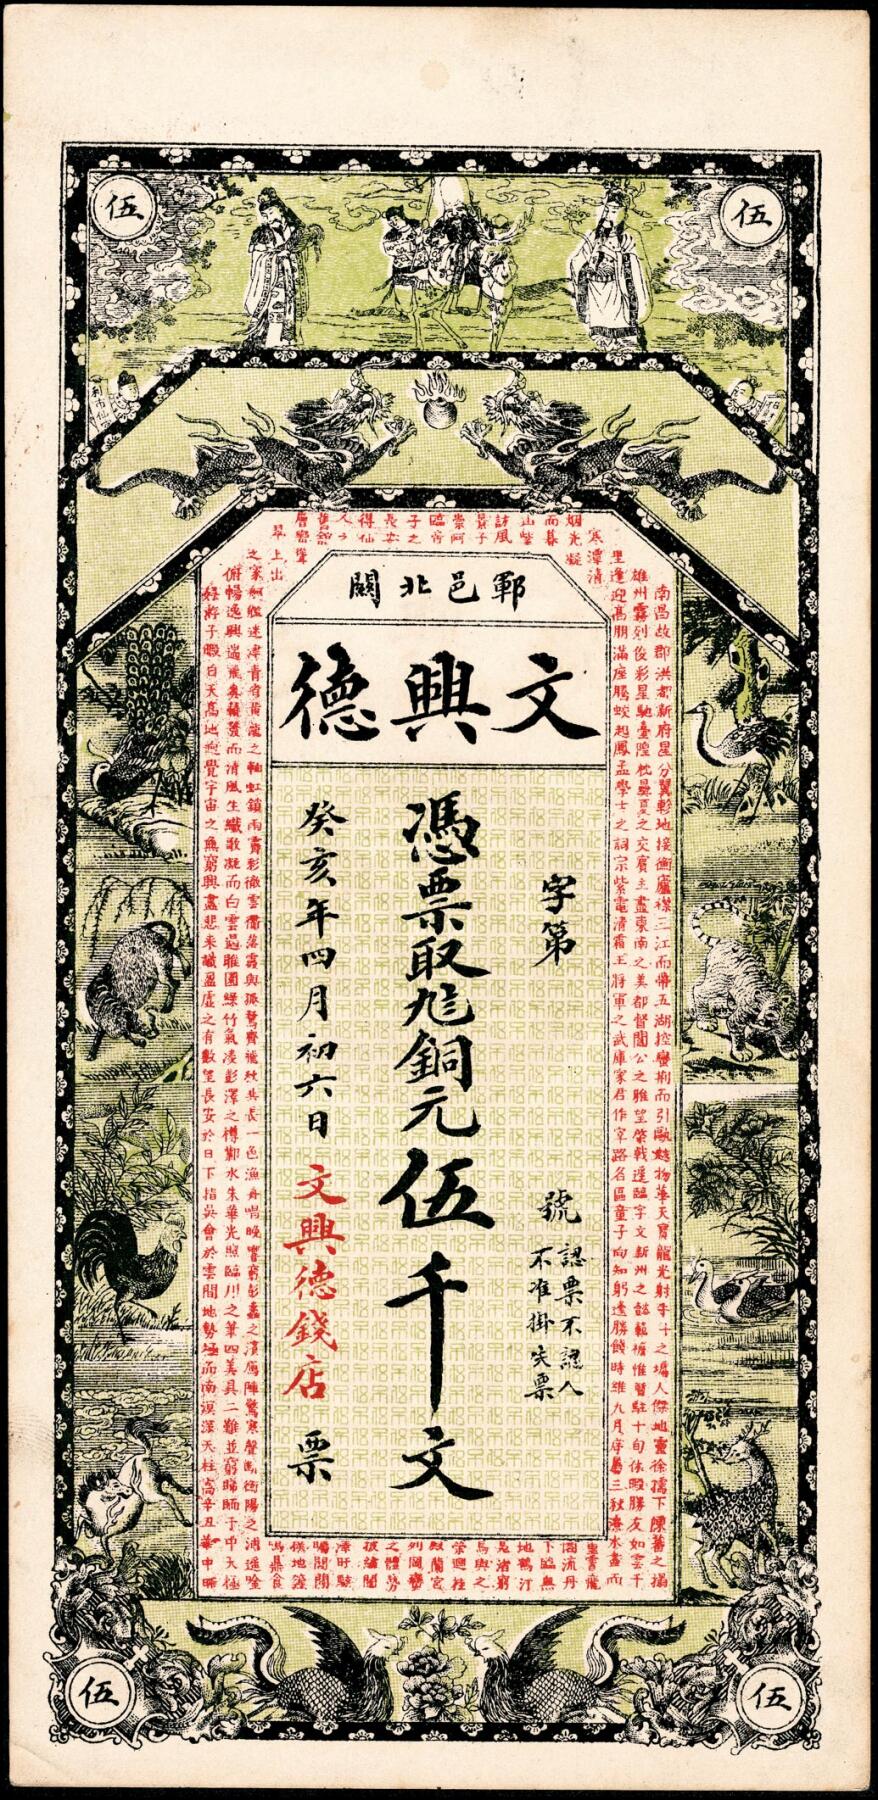 伍
伍
利市
鄆邑北關
文興德
字第
號
認票不認人
不准掛失票
憑票取銅元伍千文
癸亥年四月初六日
文興德錢店
票
南昌故郡洪都新府星分翼軫地接衡廬襟三江而帶五湖控蠻荊而引甌越物華天寶龍光射牛斗之墟人傑地靈徐孺下陳蕃之榻
雄州霧列俊彩星馳臺隍枕夷夏之交賓主盡東南之美都督閻公之雅望棨戟遥臨宇文新州之懿範襜帷暫駐十旬休暇勝友如雲千
里逢迎高朋滿座騰蛟起鳳孟學士之詞宗紫電清霜王將軍之武庫家君作宰路名區童子何知躬逢勝餞時維九月序屬三秋潦水盡而
寒潭清
烟光凝
而暮
山紫
訪風
崇阿
臨帝
子之
長
得仙
人之
舊館
層巒聳
翠上出
重霄飛
閣流丹
下臨無
地鶴汀
鳧渚窮
島嶼之
縈迴桂
殿蘭宮
列岡巒
之體勢
披繡闥
之家舸艦迷津青雀黃龍之軸虹銷雨霽彩徹雲衢落霞與孤鶩齊飛秋共長一色漁舟唱晚響窮彭蠡之濱鴈陣驚寒聲斷衡陽之浦遥吟
俯暢逸興遄飛爽籟發而清風生纖歌凝而白雲遏睢園綠竹氣凌彭澤之樽鄴水朱華光照臨川之筆四美具二難並窮睇眄于中天極
娛於暇日天高地迥覺宇宙之無窮興盡悲來識盈虛之有數望長安於日下指吳會於雲間地勢極而南溟深天柱高
伍
伍